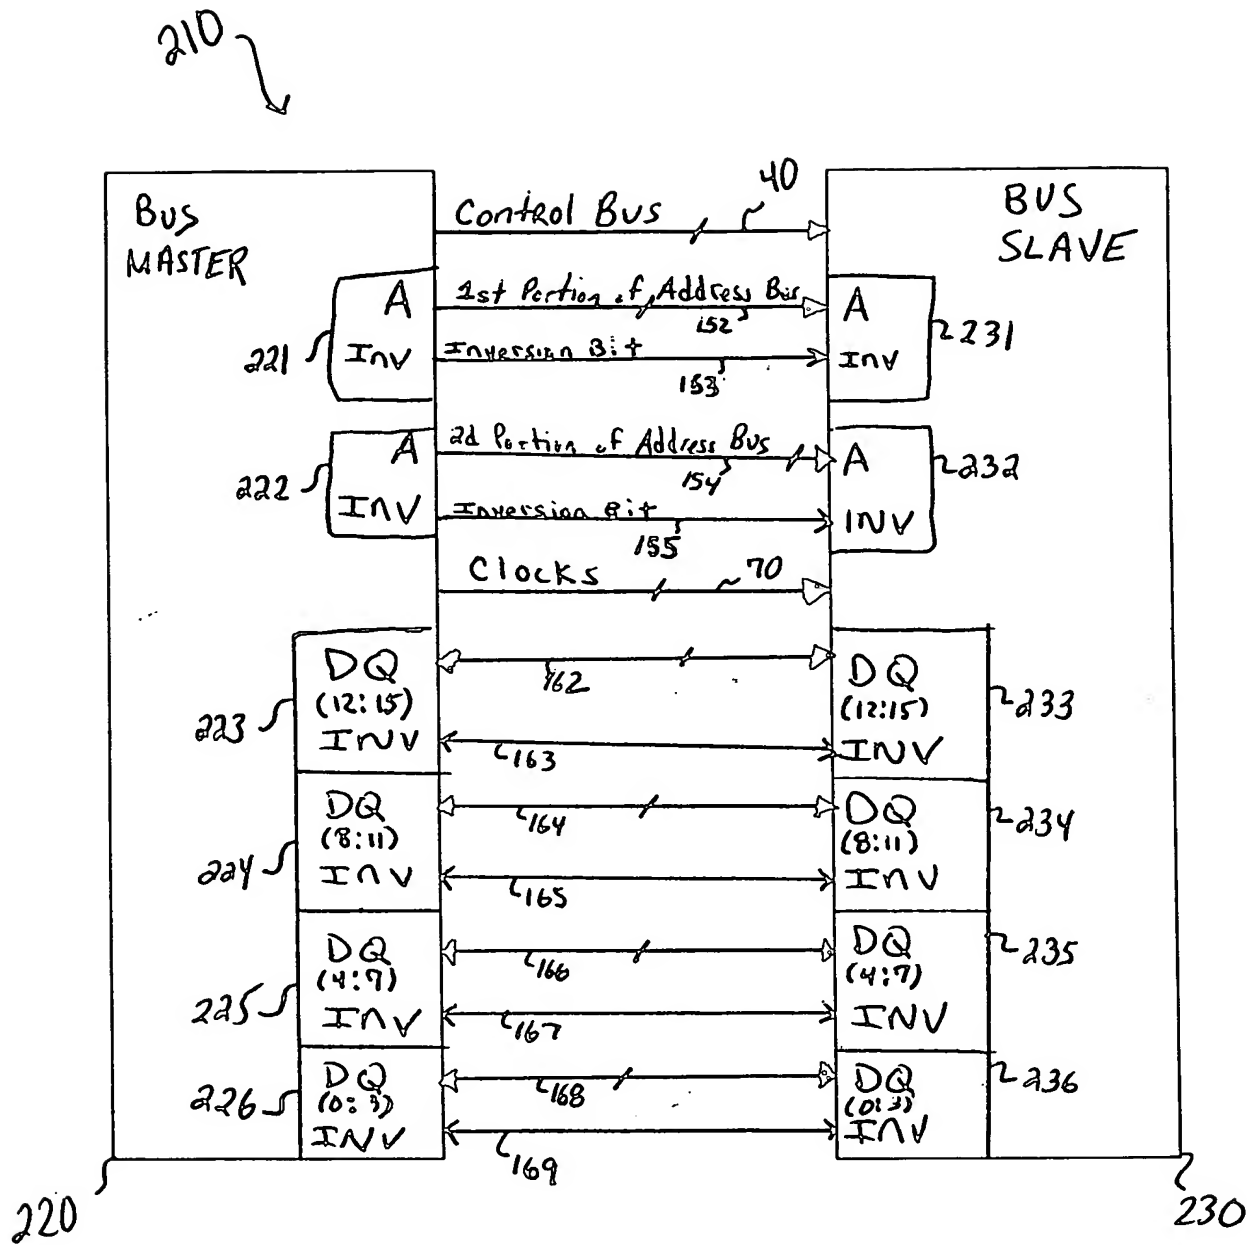 210
Bus
MASTER
Control Bus
40
BUS
SLAVE
221
A
Inv
1st Portion of Address Bus
152
Inversion Bit
153
A
Inv
231
222
A
INV
2d Portion of Address Bus
154
Inversion Bit
155
A
INV
232
Clocks
70
223
DQ
(12:15)
INV
162
163
DQ
(12:15)
INV
233
224
DQ
(8:11)
INV
164
165
DQ
(8:11)
INV
234
225
DQ
(4:7)
INV
166
167
DQ
(4:7)
INV
235
226
DQ
(0:3)
INV
168
169
DQ
(0:3)
INV
236
220
230